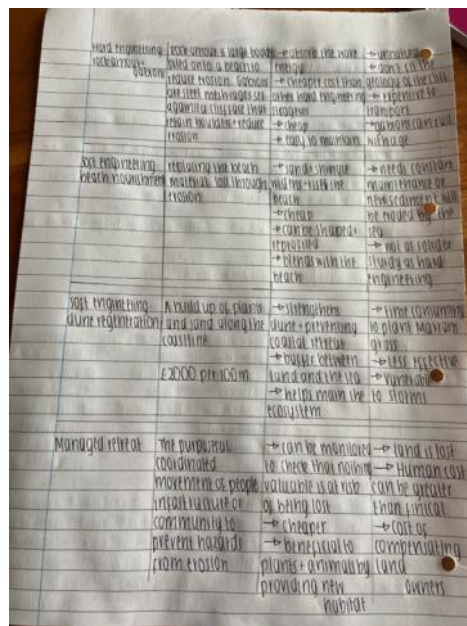 Hard engineering
rock armour +
gabions
rock armour is large boulders
piled onto a beach to
reduce erosion. Gabions
are steel mesh cages set
against a cliff face that
retain boulders + reduce
erosion
→ absorb the wave
energy
→ cheaper cost than
other hard engineering
strategies
→ cheap
→ easy to maintain
→ unnatural
→ don't fit the
geology of the cliff
→ expensive to
transport
→ gabions can rust
with age
Soft engineering
beach nourishment
replacing the beach
material lost through
erosion
→ sand + shingle
widths + rises the
beach
→ cheap
→ can be shaped +
reprofiled
→ blends with the
beach
→ needs constant
maintenance or
sediment will
be eroded by the
sea
→ not as solid or
sturdy as hard
engineering
soft engineering -
dune regeneration
A build up of plants
and sand along the
coastline
£2000 per 100m
→ strengthens
dune + preventing
coastal retreat
→ buffer between
land and the sea
→ helps main the
ecosystem
→ time consuming
to plant Marram
grass
→ less effective
→
to storms
Managed retreat
The purposeful
coordinated
movement of people
infastructure or
community to
prevent hazards
from erosion
→ can be monitored
to check that nothing
valuable is at risk
of being lost
→ cheaper
→ beneficial to
plants + animals by
providing new
habitat
→ land is lost
→ Human cost
can be greater
than finical
→ cost of
compensating
land
owners